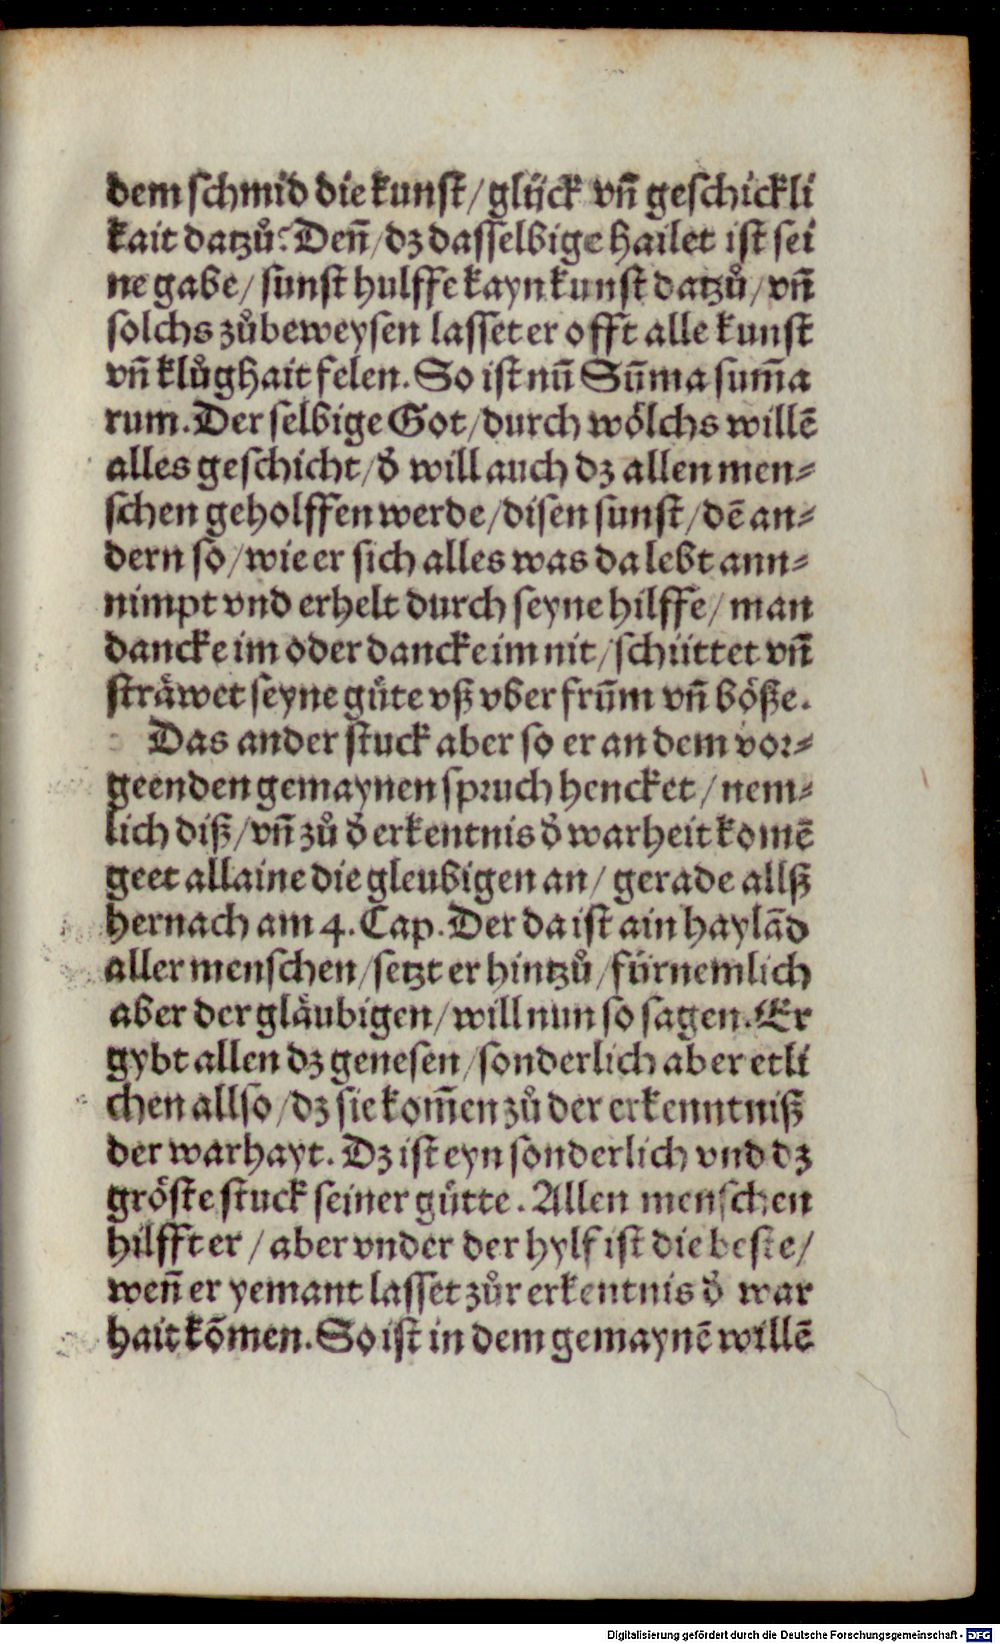 dem schmid die kunst/ glück vñ geschickli
kait datzů? Deñ/ dz dasselbige hailet ist sei
ne gabe/ sunst hulffe kayn kunst datzů/ vñ
solchs zůbeweysen lasset er offt alle kunst
vñ klůghait felen. So ist nũ Sũma sum̃a
rum. Der selbige Got/ durch wölchs willẽ
alles geschicht/ ď will auch dz allen men⸗
schen geholffen werde/ disen sunst/ dẽ an⸗
dern so/ wie er sich alles was da lebt ann⸗
nimpt vnd erhelt durch seyne hilffe/ man
dancke im oder dancke im nit/ schüttet vñ
sträwet seyne gůte vß vber frũm vñ böße.
Das ander stuck aber so er an dem vor⸗
geenden gemaynen spruch hencket/ nem⸗
lich diß/ vñ zů ď erkentnis ď warheit komẽ
geet allaine die gleubigen an/ gerade allß
hernach am 4. Cap. Der da ist ain haylãd
aller menschen/ setzt er hintzů/ fürnemlich
aber der gläubigen/ will nun so sagen. Er
gybt allen dz genesen/ sonderlich aber etli
chen allso/ dz sie kom̃en zů der erkenntniß
der warhayt. Dz ist eyn sonderlich vnd dz
gröste stuck seiner gůtte. Allen menschen
hilfft er/ aber vnder der hylf ist die beste/
weñ er yemant lasset zůr erkentnis ď war
hait kõmen. So ist in dem gemaynẽ willẽ
Digitalisierung gefördert durch die Deutsche Forschungsgemeinschaft - DFG